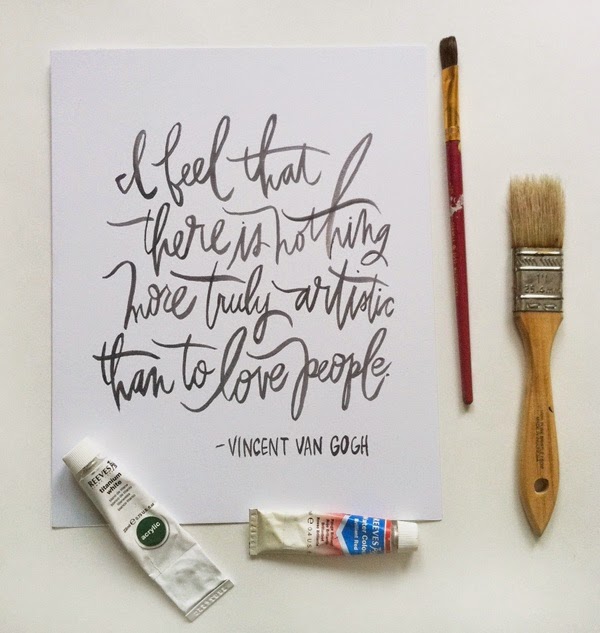 I feel that
there is nothing
more truly artistic
than to love people.
-VINCENT VAN GOGH
REEVES
titanium
white
acrylic
REEVES
Water Colour
1"